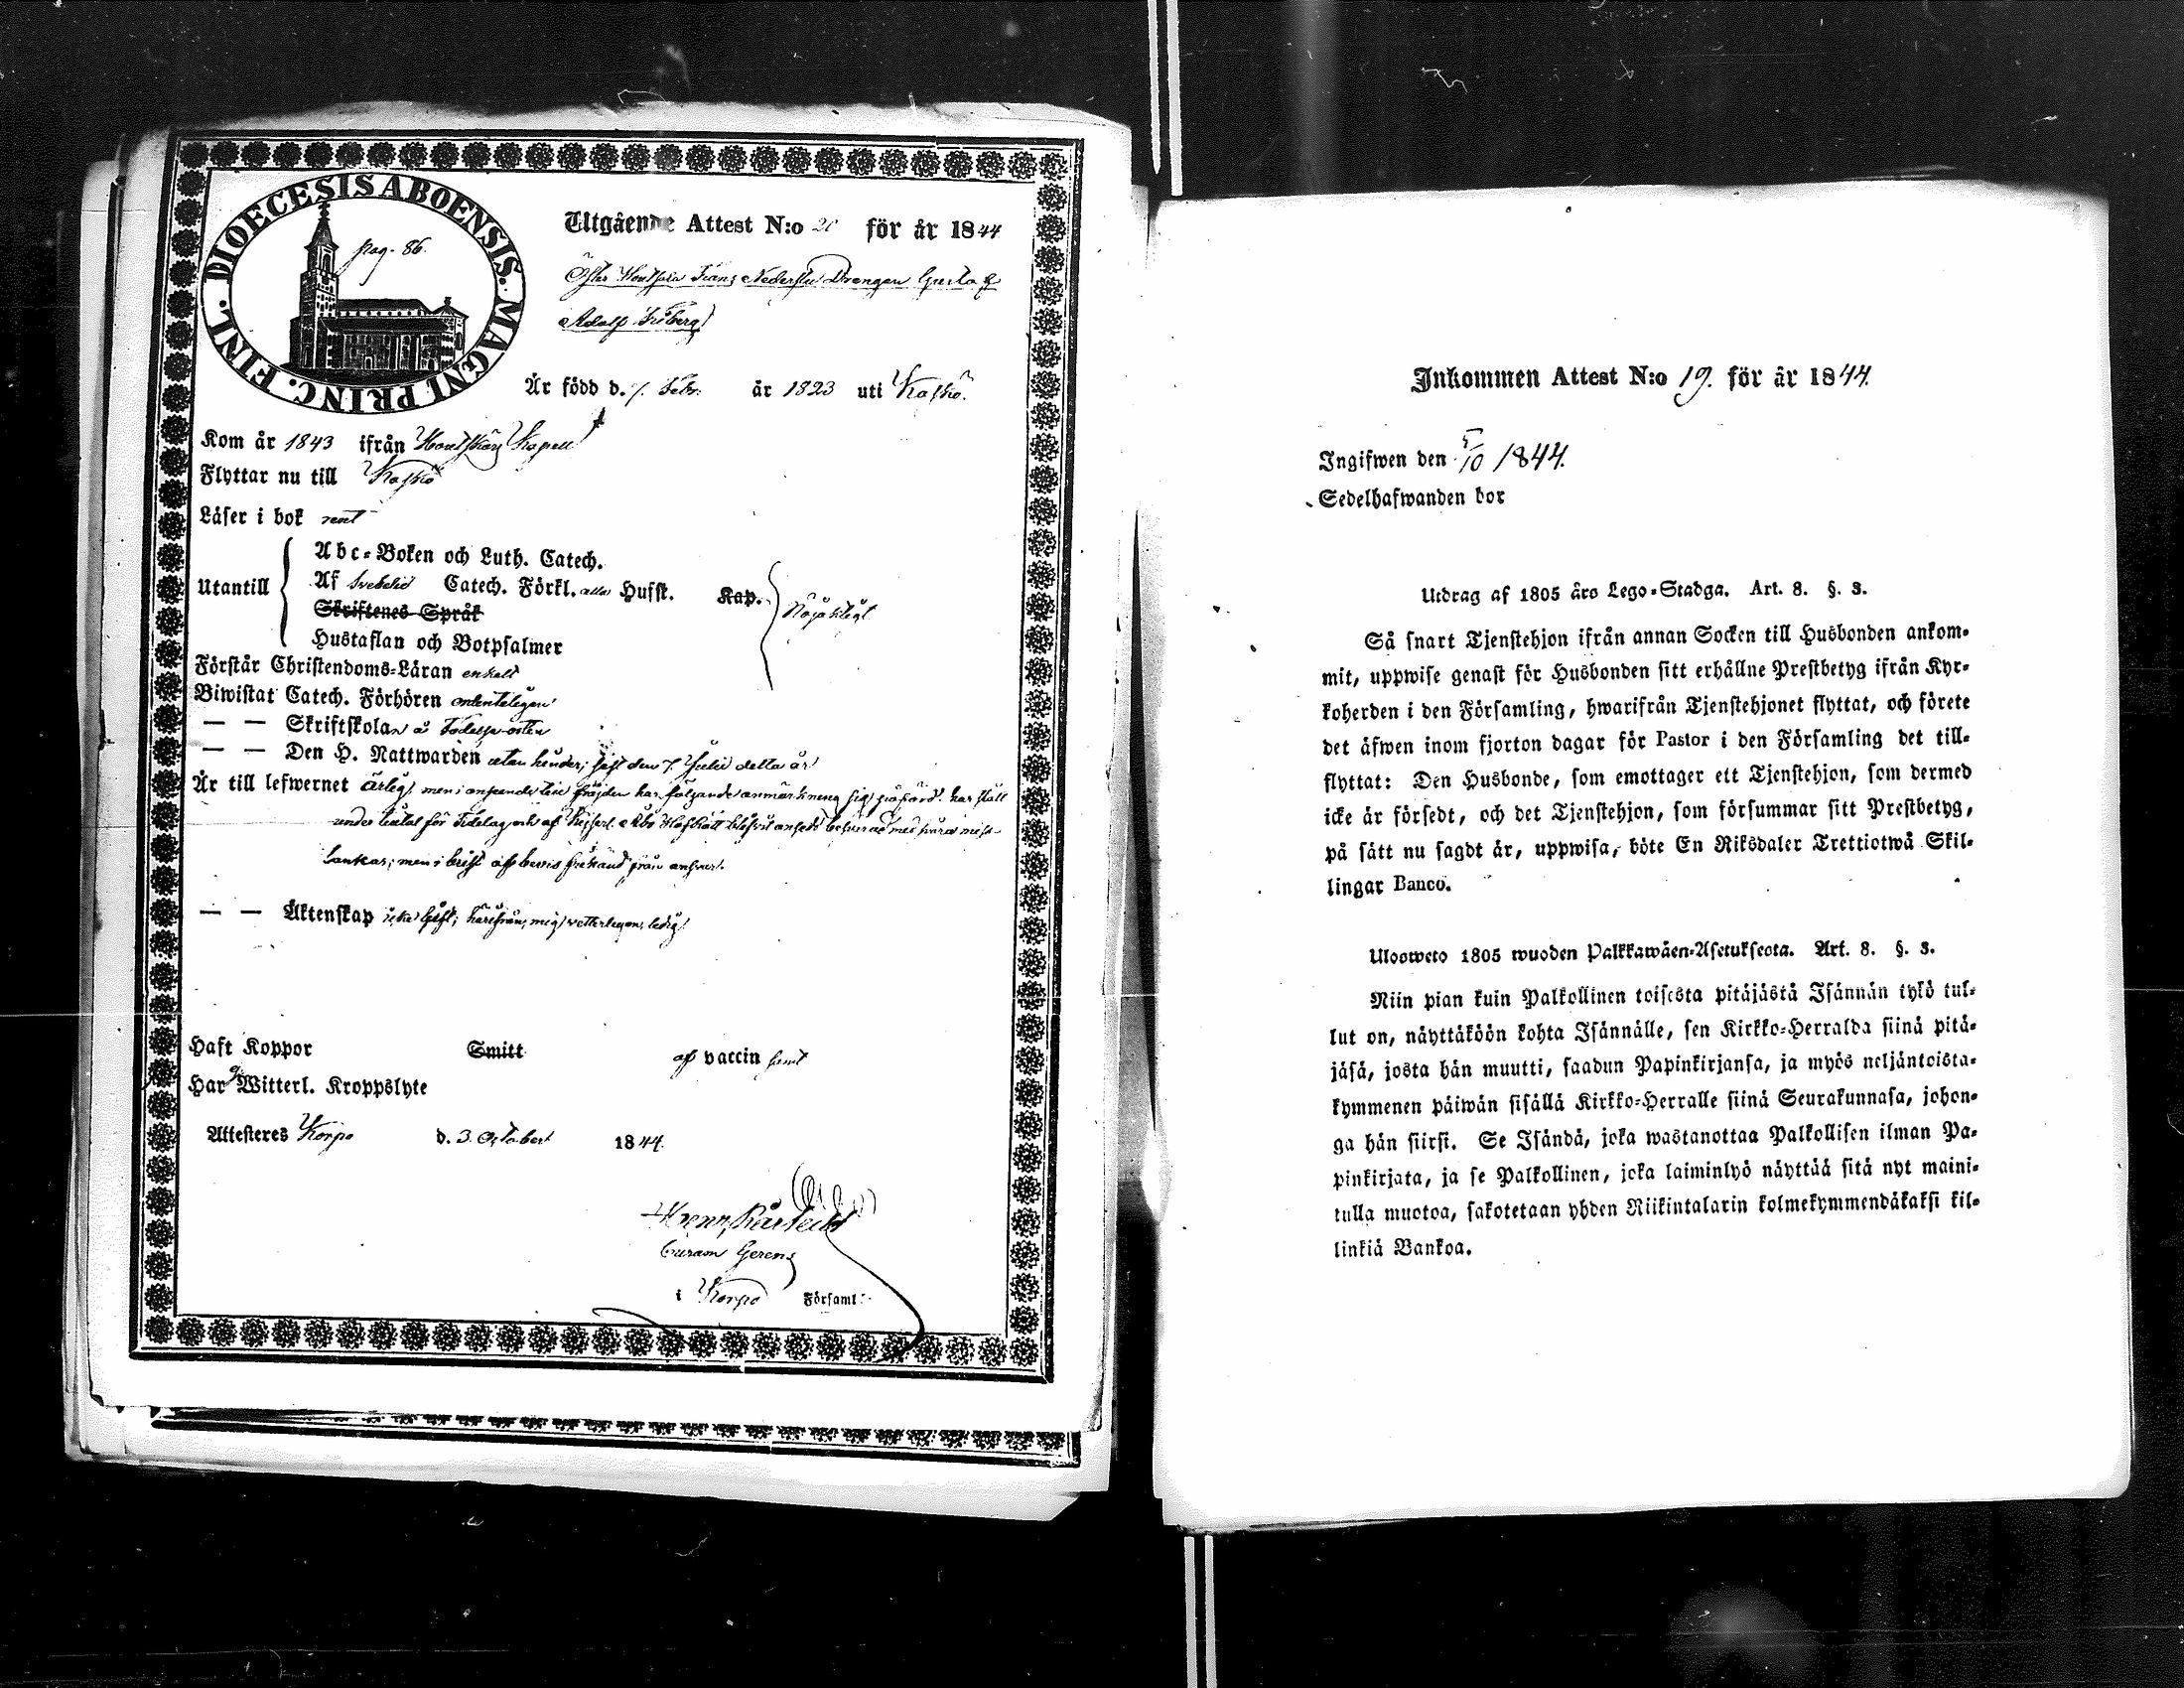 DIOECESIS ABOENSIS. MAGNI PRINC. FINL.
pag. 86.
Utgående Attest N:o 20 för år 1844
Drengen Gusta f
Adolf Friberg
Är född d. 1. Febr. år 1823 uti Kaskö.
Kom år 1843 ifrån Houtskärs Kapell
Flyttar nu till Kaskö
Läser i bok rent
Utantill
Abc-Boken och Luth. Catech.
Af Svebelii Catech. Förkl. alla Husst. Kap.
Skriftenes Språk
Hustaflan och Botpsalmer
Nöjaktligt
Förstår Christendoms-Läran enkelt
Biwistat Catech. Förhören ordenteligen
— — Skriftskolan å födelseorten
— — Den H. Nattwarden utan hinder, sist den 7 Julii detta år
Är till lefwernet ärlig, men i anseende till fräjden har följande anmärkning sig påförd: har stått
under tiltal för tidelag och af Kejserl. Åbo Hofrätt blifvit ansedd besvärad med svåra miss-
tankar; men i brist af bevis frikänd från ansvar.
— — Äktenskap icke gift; härifrån, mig vetterligen, ledig.
Haft Koppor Smitt af vaccin haft
Har ej Witterl. Kroppslyte
Attesteres Korpo d. 3 October 1844.
Curam Gerens
i Korpo Församl:
Inkommen Attest N:o 19. för år 1844.
Ingifwen den 5/10 1844.
Sedelhafwanden bor
Utdrag af 1805 års Lego-Stadga. Art. 8. §. 3.
Så snart Tjenstehjon ifrån annan Socken till Husbonden ankom-
mit, uppwise genast för Husbonden sitt erhållne Prestbetyg ifrån Kyr-
koherden i den Församling, hwarifrån Tjenstehjonet flyttat, och förete
det äfwen inom fjorton dagar för Pastor i den Församling det till-
flyttat: Den Husbonde, som emottager ett Tjenstehjon, som dermed
icke är försedt, och det Tjenstehjon, som försummar sitt Prestbetyg,
på sätt nu sagdt är, uppwisa, böte En Riksdaler Trettiotwå Skil-
lingar Banco.
Ulosweto 1805 wuoden Palkkawäen-Asetuksesta. Art. 8. §. 3.
Niin pian kuin Palkollinen toisesta pitäjästä Isännän tykö tul-
lut on, näyttäköön kohta Isännälle, sen Kirkko-Herralda siinä pitä-
jäsä, josta hän muutti, saadun Papinkirjansa, ja myös neljäntoista-
kymmenen päiwän sisällä Kirkko-Herralle siinä Seurakunnasa, johon-
ga hän siirsi. Se Isändä, joka wastanottaa Palkollisen ilman Pa-
pinkirjata, ja se Palkollinen, joka laiminlyö näyttää sitä nyt maini-
tulla muotoa, sakotetaan yhden Riikintalarin kolmekymmendäkaksi kil-
linkiä Bankoa.